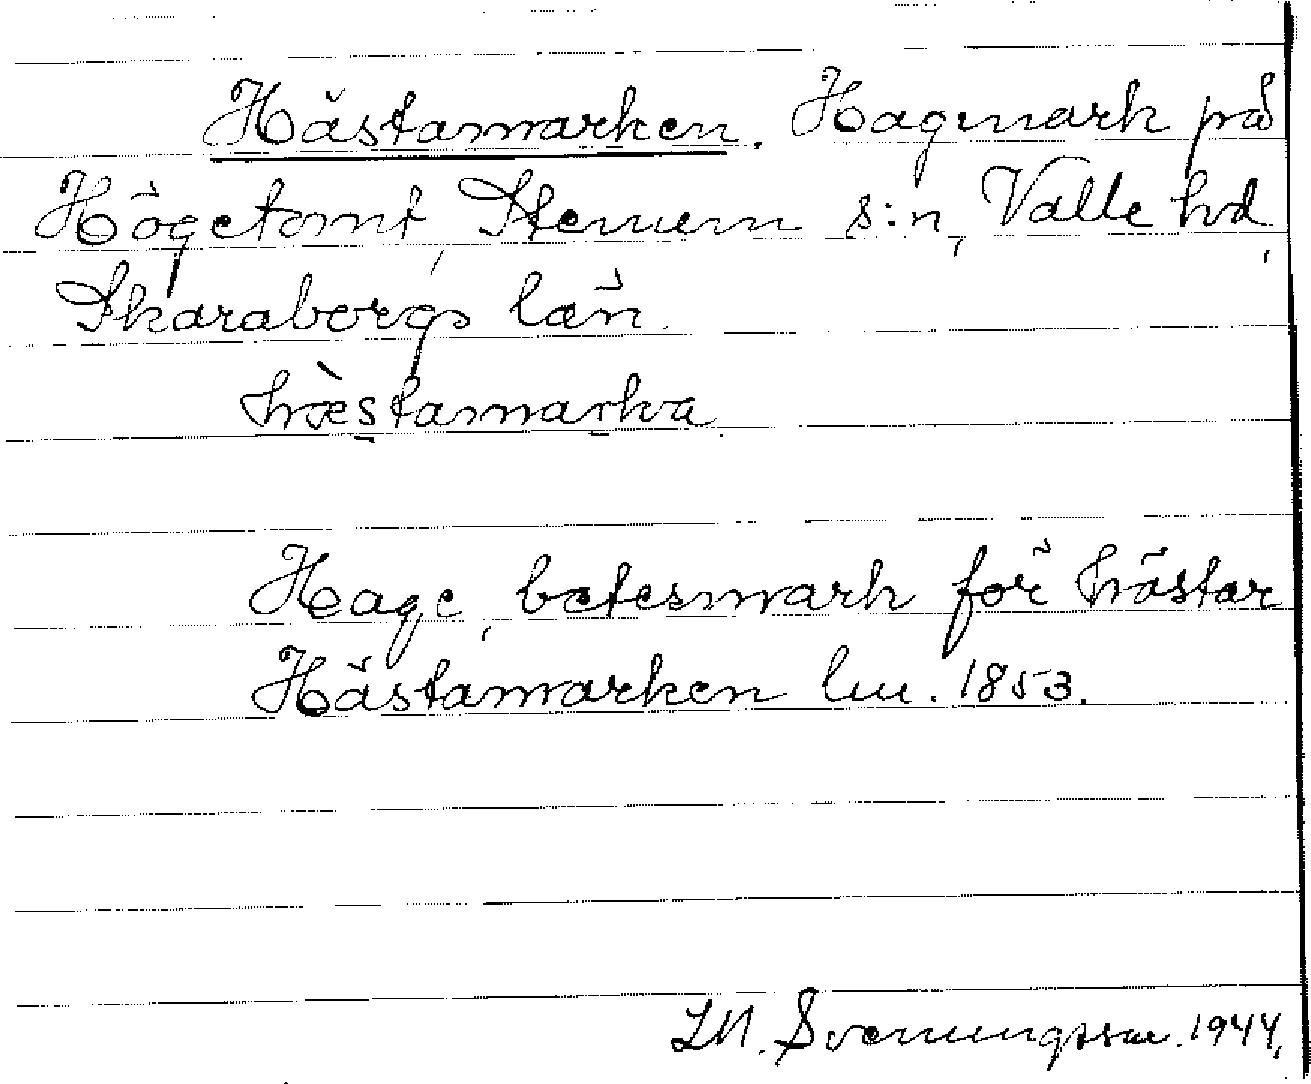 Hästamarken. Hagmark på
Högetomt, Stenum s:n, Valle hd,
Skarabergs län.
hæ̀stamarka
Hage, betesmark för hästar
Hästamarken lm. 1853.
Svenungsson. 1944.